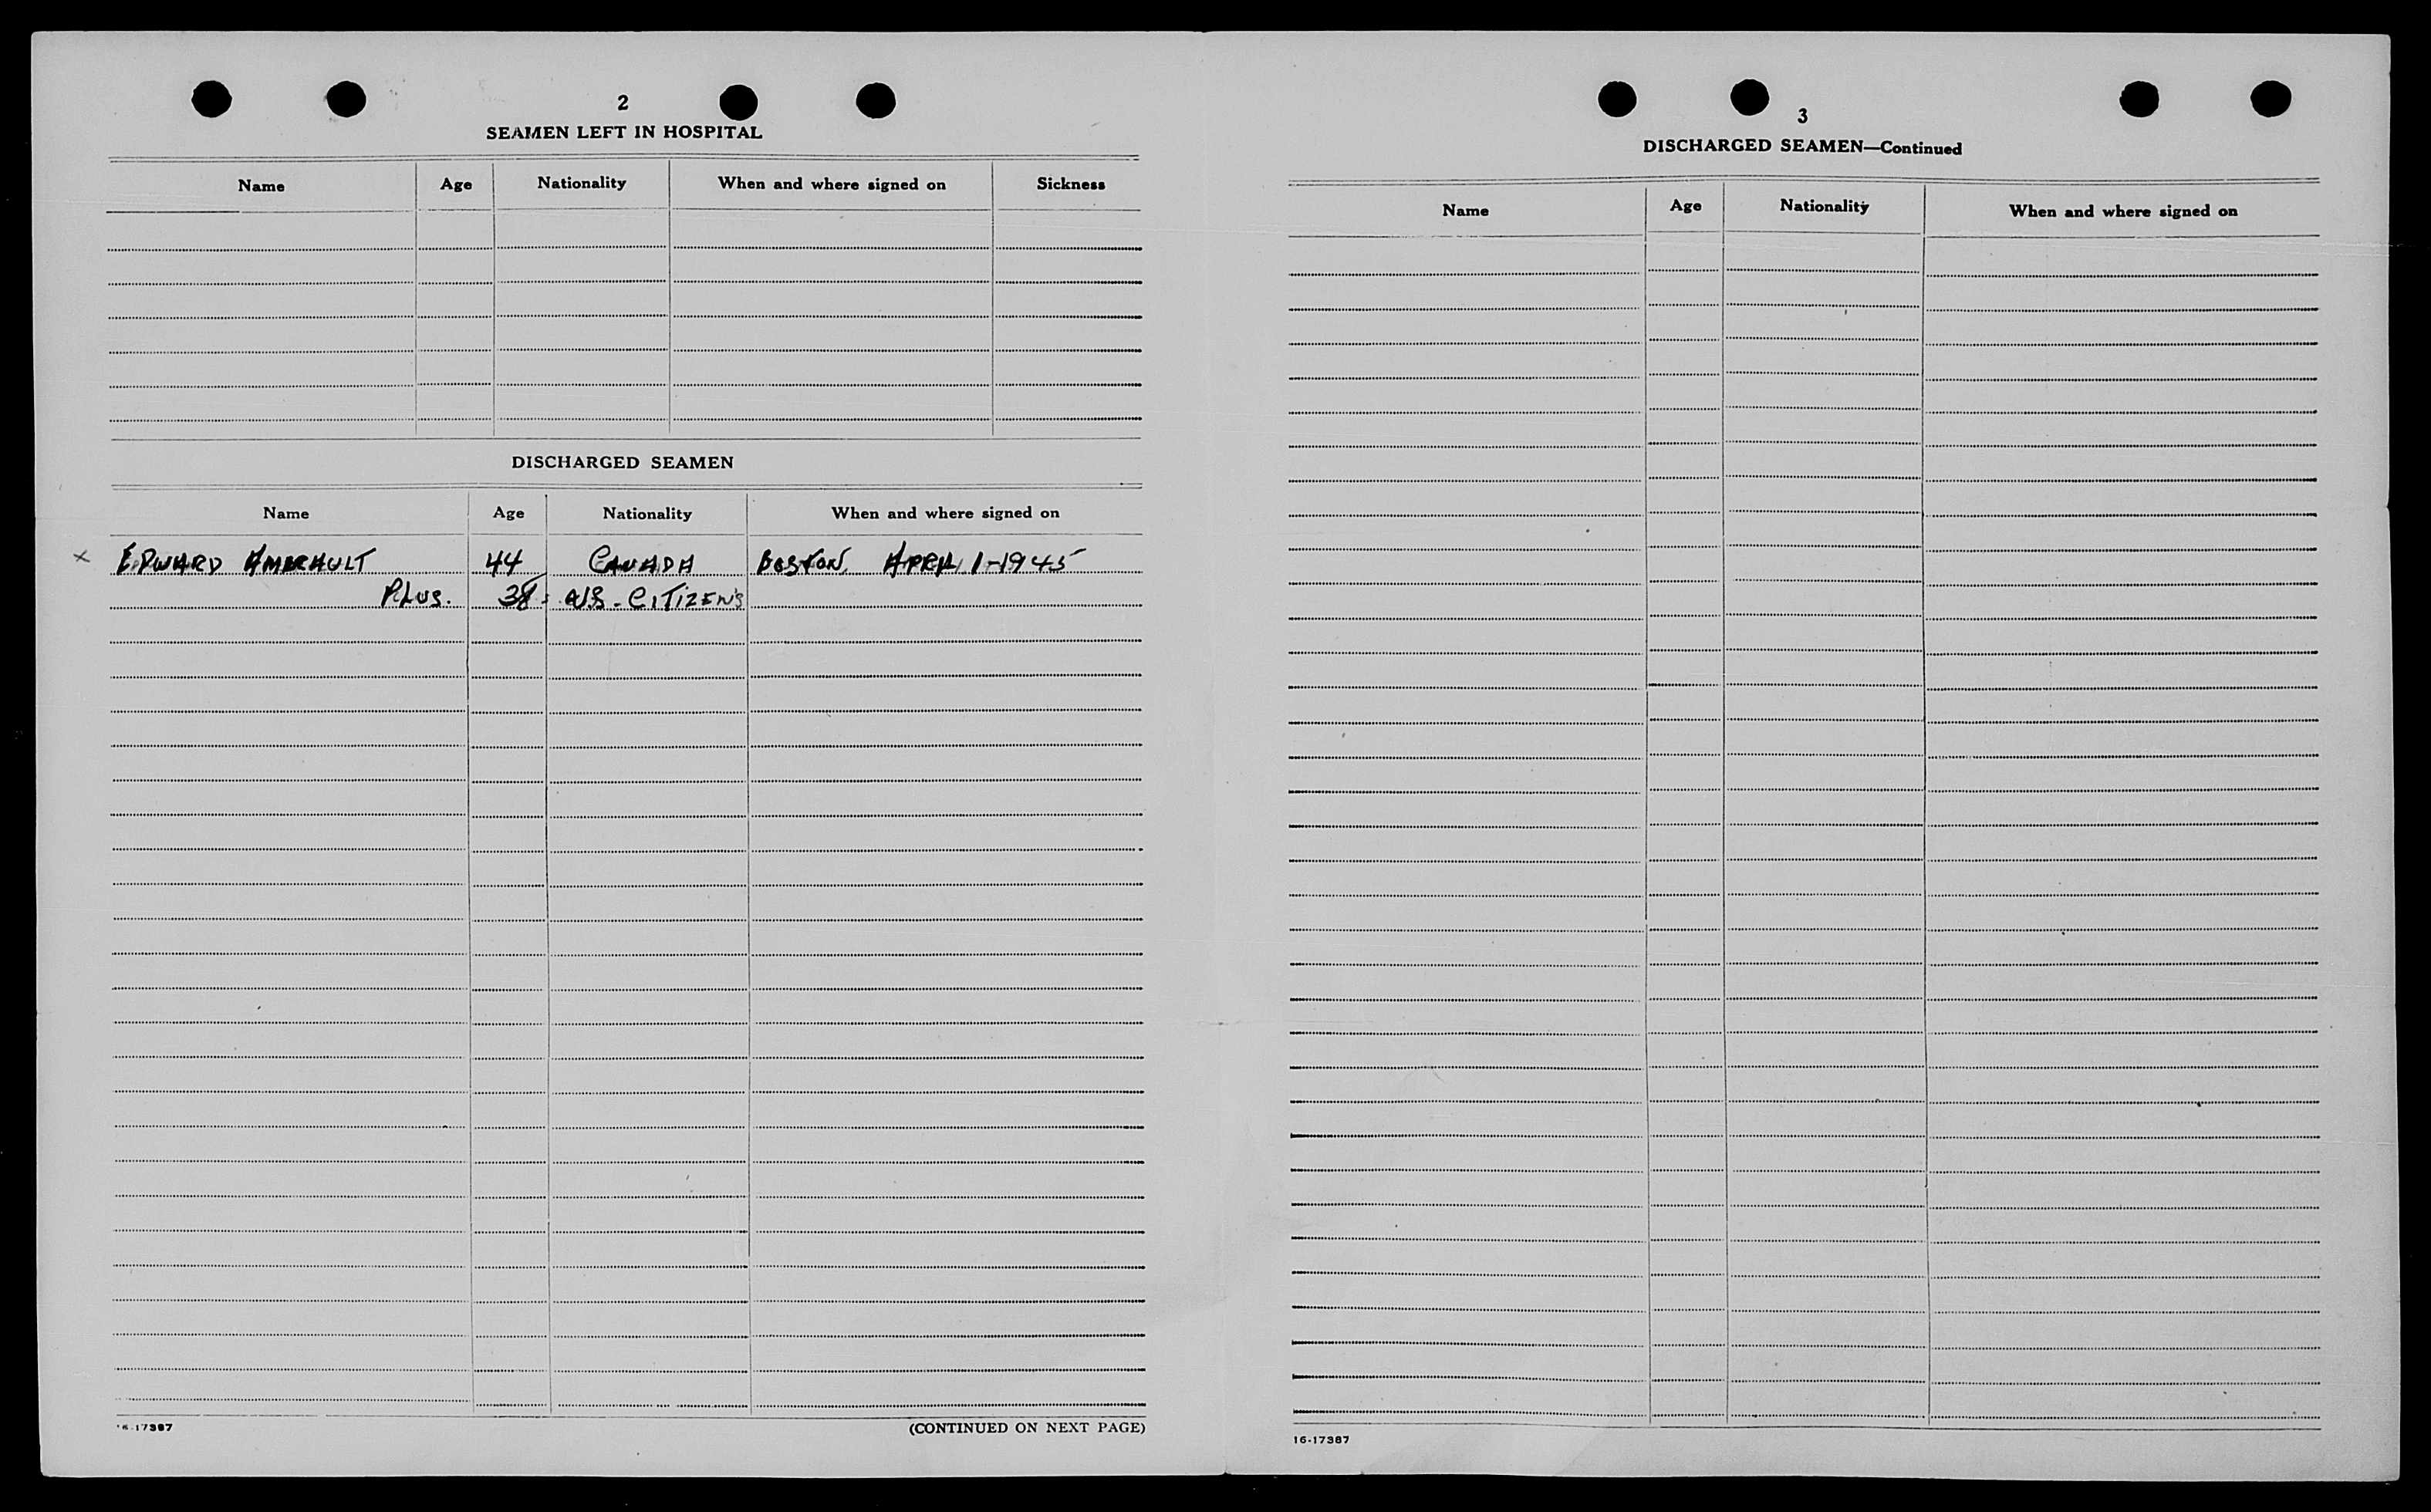 2
SEAMEN LEFT IN HOSPITAL
Name Age Nationality When and where signed on Sickness
DISCHARGED SEAMEN
Name Age Nationality When and where signed on
x EDWARD AMERAULT 44 CANADA BOSTON APRIL 1-1945
PLUS. U.S. CITIZENS
16-17387 (CONTINUED ON NEXT PAGE)
3
DISCHARGED SEAMEN—Continued
Name Age Nationality When and where signed on
16-17387